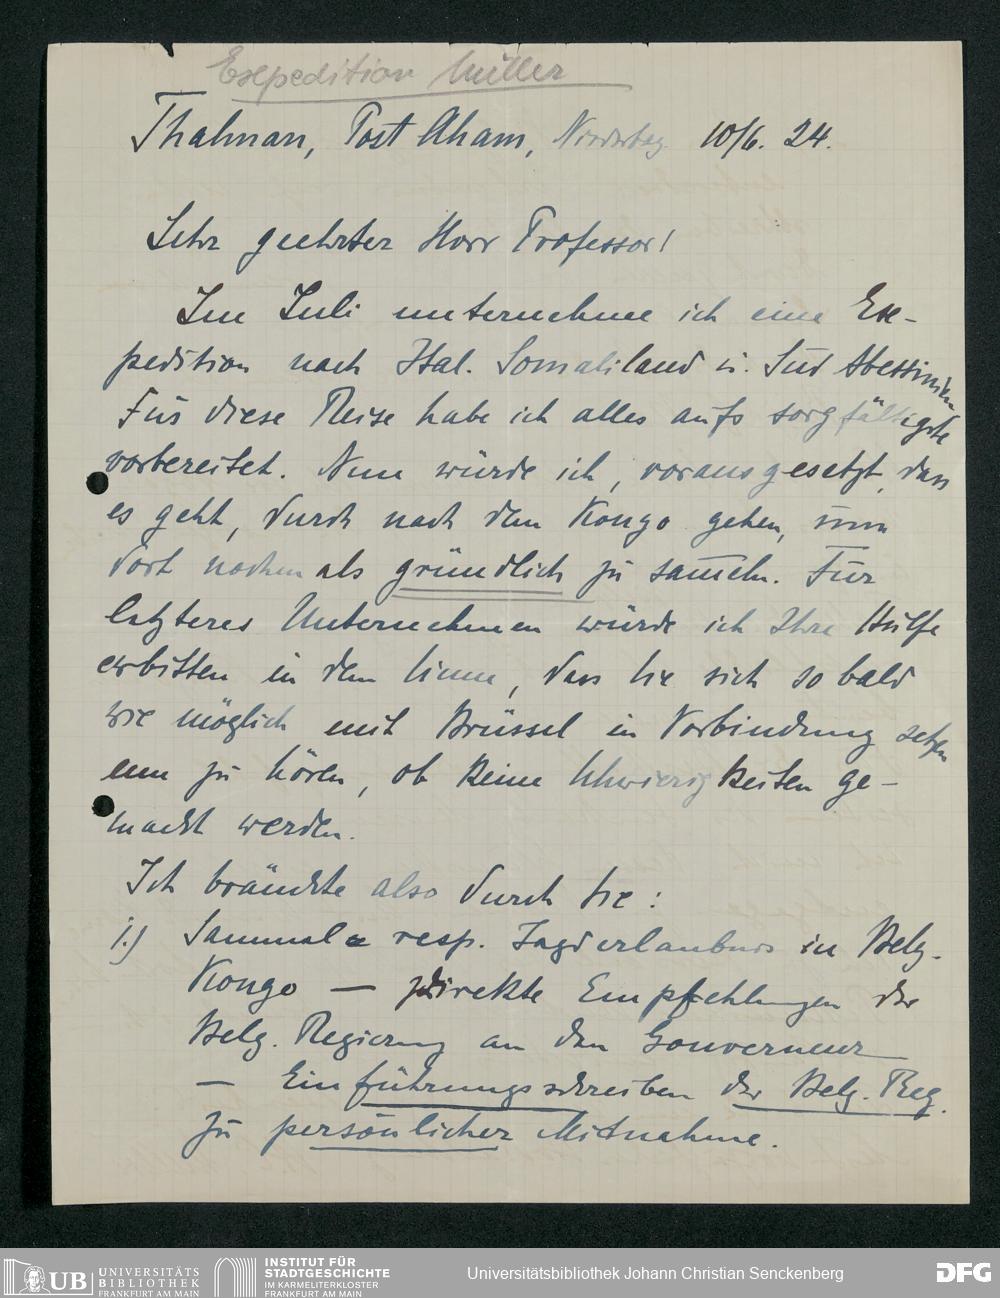 Expedition Müller
Thalman, Post Aham, Niederbay. 10/6. 24.
Sehr geehrter Herr Professor!
Im Juli unternehme ich eine Ex-
pedition nach Ital. Somaliland u. Süd Abessinien
Für diese Reise habe ich alles aufs sorgfältigste
vorbereitet. Nun würde ich, vorausgesetzt, dass
es geht, durch nach dem Kongo gehen, um
dort nochmals gründlich zu sam̅eln. Für
letzteres Unternehmen würde ich Ihre Hülfe
erbitten in dem Sinne, dass Sie sich so bald
wie möglich mit Brüssel in Verbindung setzen
um zu hören, ob keine Schwierigkeiten ge-
macht werden.
Ich bräuchte also durch Sie:
1.) Sammel= resp. Jagderlaubnis in Belg.
Kongo — direkte Empfehlungen der
Belg. Regierung an den Gouverneur
— Einführungsschreiben der Belg. Reg.
zu persönlicher Mitnahme.
UB UNIVERSITÄTS
BIBLIOTHEK
FRANKFURT AM MAIN
INSTITUT FÜR
STADTGESCHICHTE
IM KARMELITERKLOSTER
FRANKFURT AM MAIN
Universitätsbibliothek Johann Christian Senckenberg
DFG